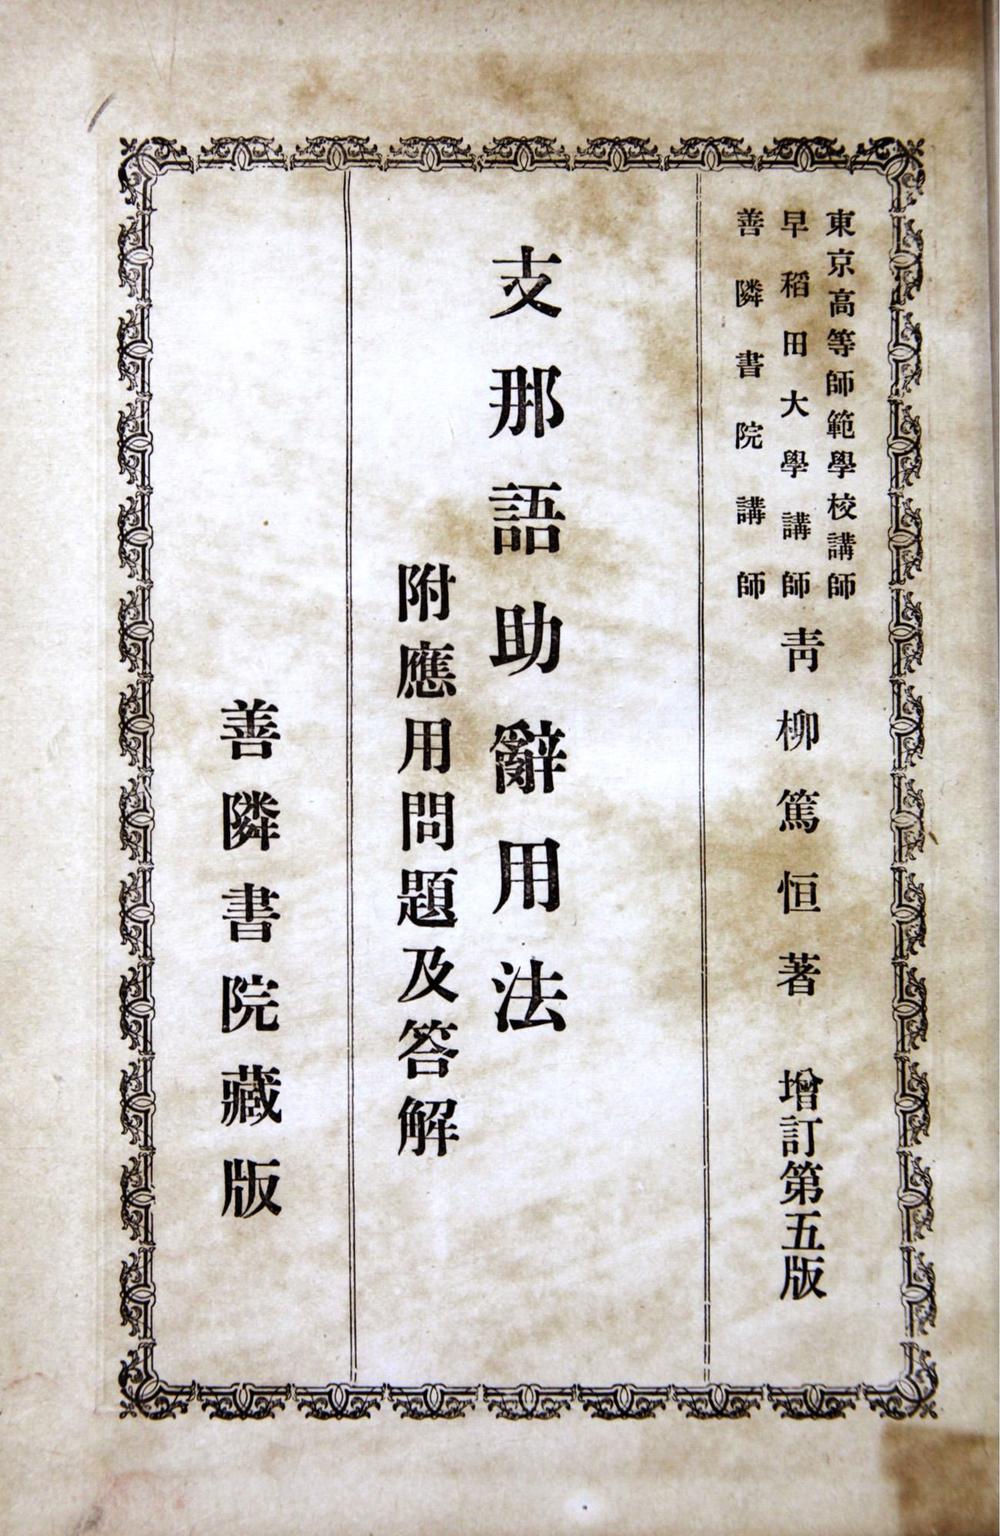 東京高等師範學校講師
早稻田大學講師
善隣書院講師
靑柳篤恒著
增訂第五版
支那語助辭用法
附應用問題及答解
善隣書院藏版